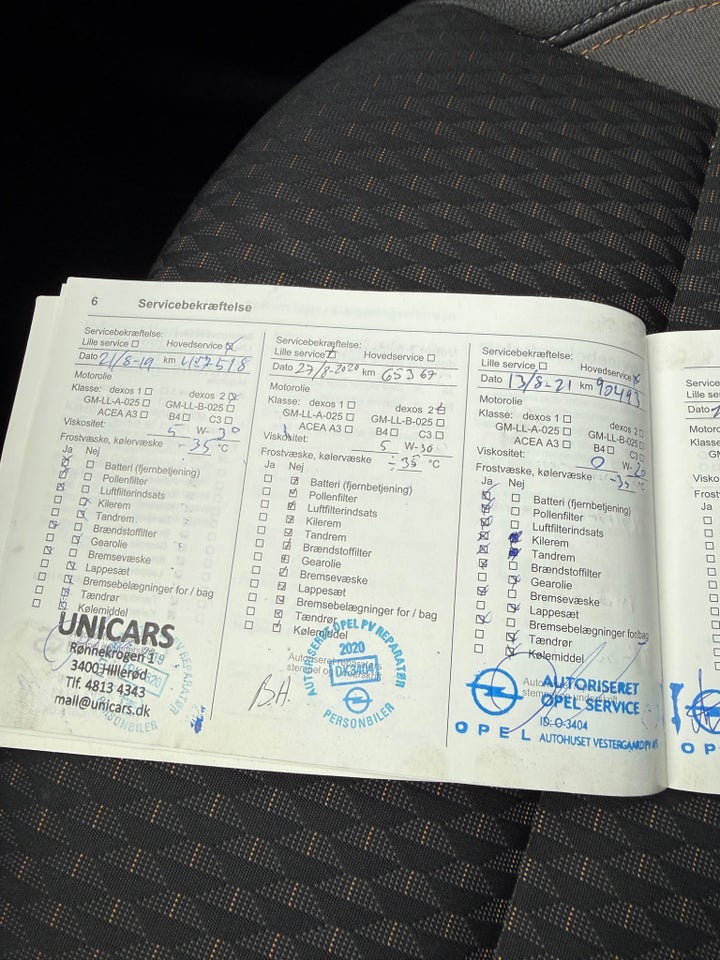 6 Servicebekræftelse
Servicebekræftelse:
Lille service Hovedservice
Dato 21/8-19 km
Motorolie
Klasse: dexos 1 dexos 2
GM-LL-A-025 GM-LL-B-025
ACEA A3 B4 C3
Viskositet: 5 W-30
Frostvæske, kølervæske -35 °C
Ja Nej
Batteri (fjernbetjening)
Pollenfilter
Luftfilterindsats
Kilerem
Tandrem
Brændstoffilter
Gearolie
Bremsevæske
Lappesæt
Bremsebelægninger for / bag
Tændrør
Kølemiddel
UNICARS
Rønnekrogen 1
3400 Hillerød
Tlf. 4813 4343
mail@unicars.dk
PERSONBILER
Servicebekræftelse:
Lille service Hovedservice
Dato 27/8-2020 km 65367
Motorolie
Klasse: dexos 1 dexos 2
GM-LL-A-025 GM-LL-B-025
ACEA A3 B4 C3
Viskositet: 5 W-30
Frostvæske, kølervæske -35 °C
Ja Nej
Batteri (fjernbetjening)
Pollenfilter
Luftfilterindsats
Kilerem
Tandrem
Brændstoffilter
Gearolie
Bremsevæske
Lappesæt
Bremsebelægninger for / bag
Tændrør
Kølemiddel
B.A.
AUTORISERET OPEL PV REPARATØR
2020
PERSONBILER
Servicebekræftelse:
Lille service Hovedservice
Dato 13/8-21 km 90493
Motorolie
Klasse: dexos 1 dexos 2
GM-LL-A-025 GM-LL-B-025
ACEA A3 B4 C3
Viskositet: 0 W-20
Frostvæske, kølervæske -35 °C
Ja Nej
Batteri (fjernbetjening)
Pollenfilter
Luftfilterindsats
Kilerem
Tandrem
Brændstoffilter
Gearolie
Bremsevæske
Lappesæt
Bremsebelægninger for/bag
Tændrør
Kølemiddel
AUTORISERET
OPEL SERVICE
ID: O-3404
OPEL AUTOHUSET VESTERGAARD
Ja